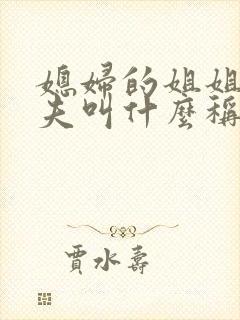 媳婦的姐姐
夫叫什麼稱
賈水壽